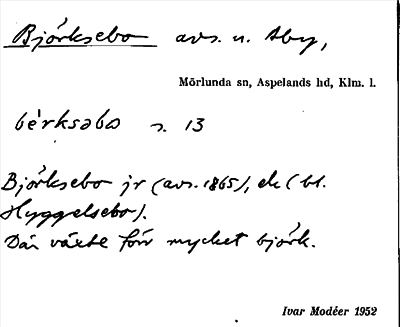 Björksebo avs. u. Åby,
Mörlunda sn, Aspelands hd, Klm. l.
bérksəbo s. 13
Björksebo jr (avs. 1865), ek (bl.
Hyggelsebo).
Där växte förr mycket björk.
Ivar Modéer 1952